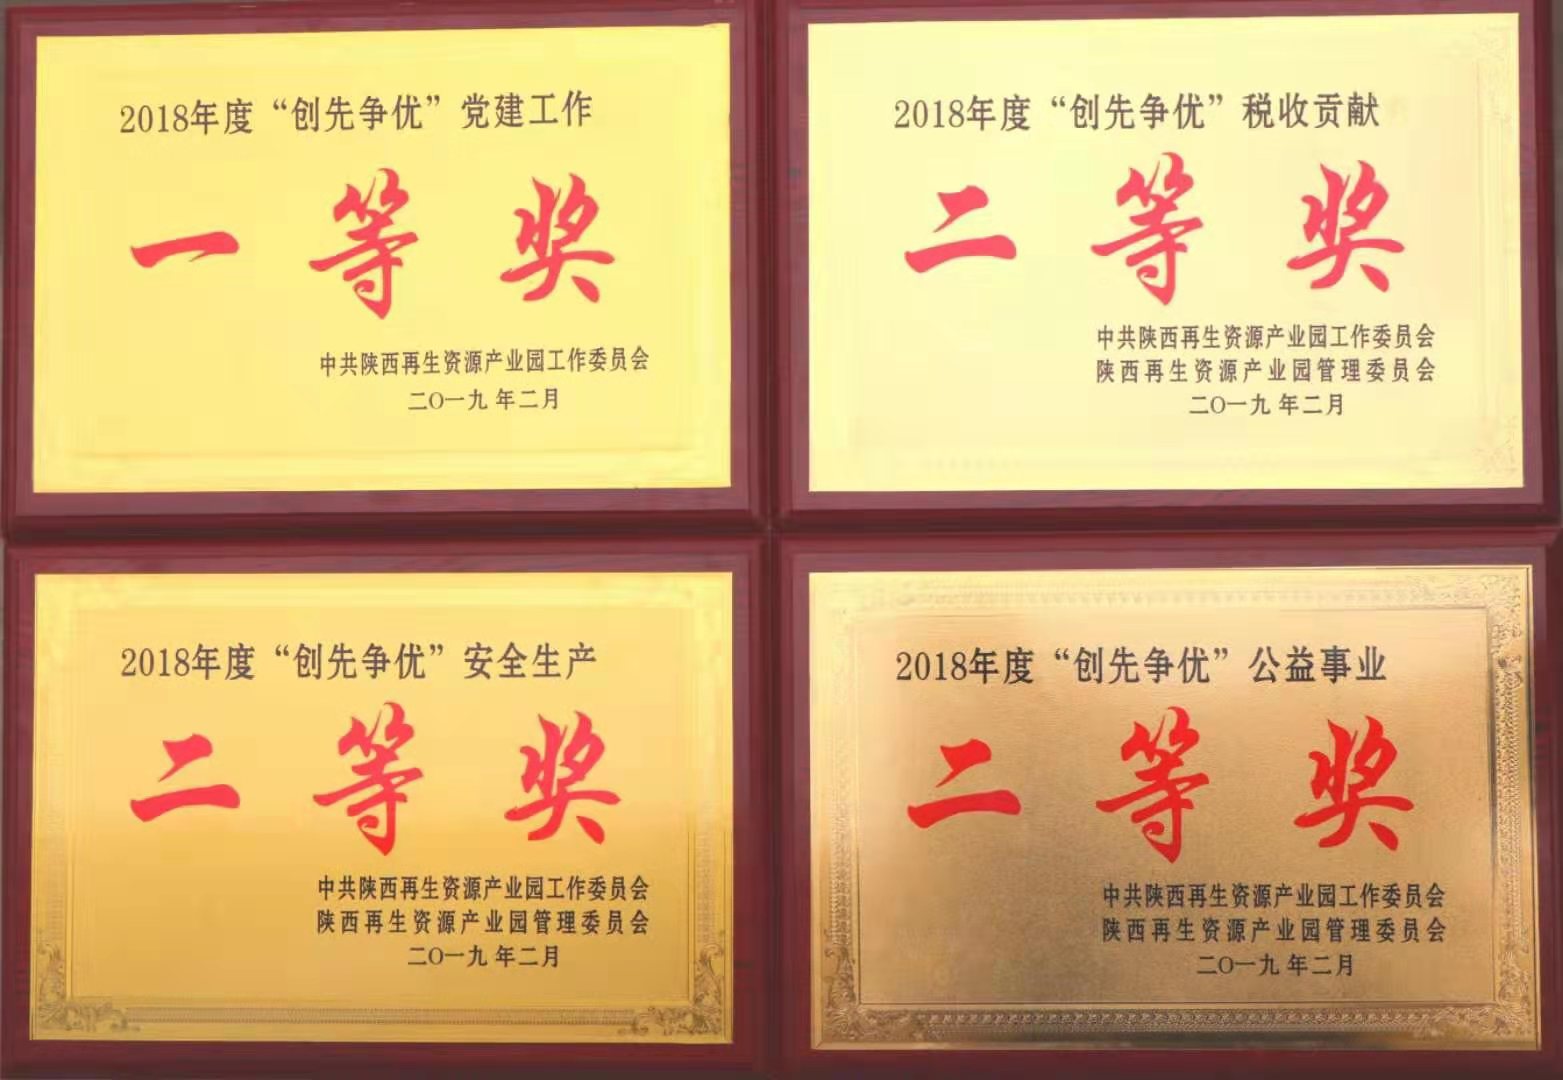 2018年度“创先争优”党建工作
一等奖
中共陕西再生资源产业园工作委员会
二〇一九年二月
2018年度“创先争优”税收贡献
二等奖
中共陕西再生资源产业园工作委员会
陕西再生资源产业园管理委员会
二〇一九年二月
2018年度“创先争优”安全生产
二等奖
中共陕西再生资源产业园工作委员会
陕西再生资源产业园管理委员会
二〇一九年二月
2018年度“创先争优”公益事业
二等奖
中共陕西再生资源产业园工作委员会
陕西再生资源产业园管理委员会
二〇一九年二月